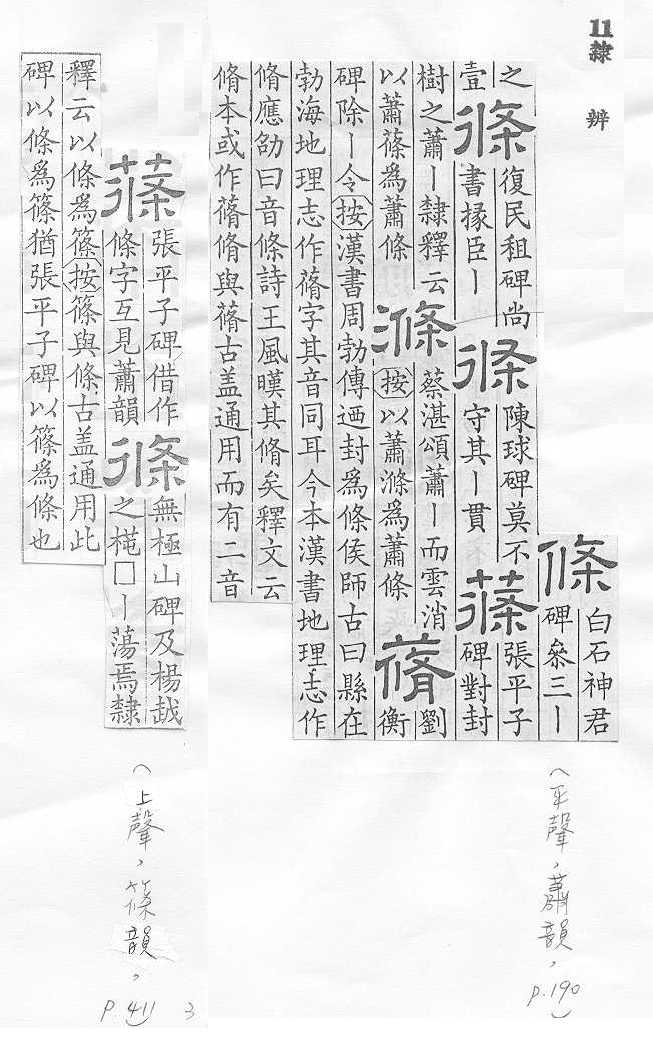 11 隸辨
條
白石神君
碑叅三丨
之
壹
條
復民租碑尚
書掾臣丨
條
陳球碑莫不
守其丨貫
蓧
張平子
碑對封
樹之蕭丨隸釋云
以蕭蓧為蕭條
滌
蔡湛頌蕭丨而雲消
按以蕭滌為蕭條
蓨
劉
衡
碑除丨令按漢書周勃傳迺封為條侯師古曰縣在
勃海地理志作蓨字其音同耳今本漢書地理志作
脩應劭曰音條詩王風暵其脩矣釋文云
脩本或作蓨脩與蓨古盖通用而有二音
(平聲，蕭韻，p.190)
蓧
張平子碑借作
條字互見蕭韻
條
無極山碑及楊越
之□丨蕩焉隸
釋云以條為篠按篠與條古盖通用此
碑以條為篠猶張平子碑以篠為條也
(上聲，篠韻，p.411)
3